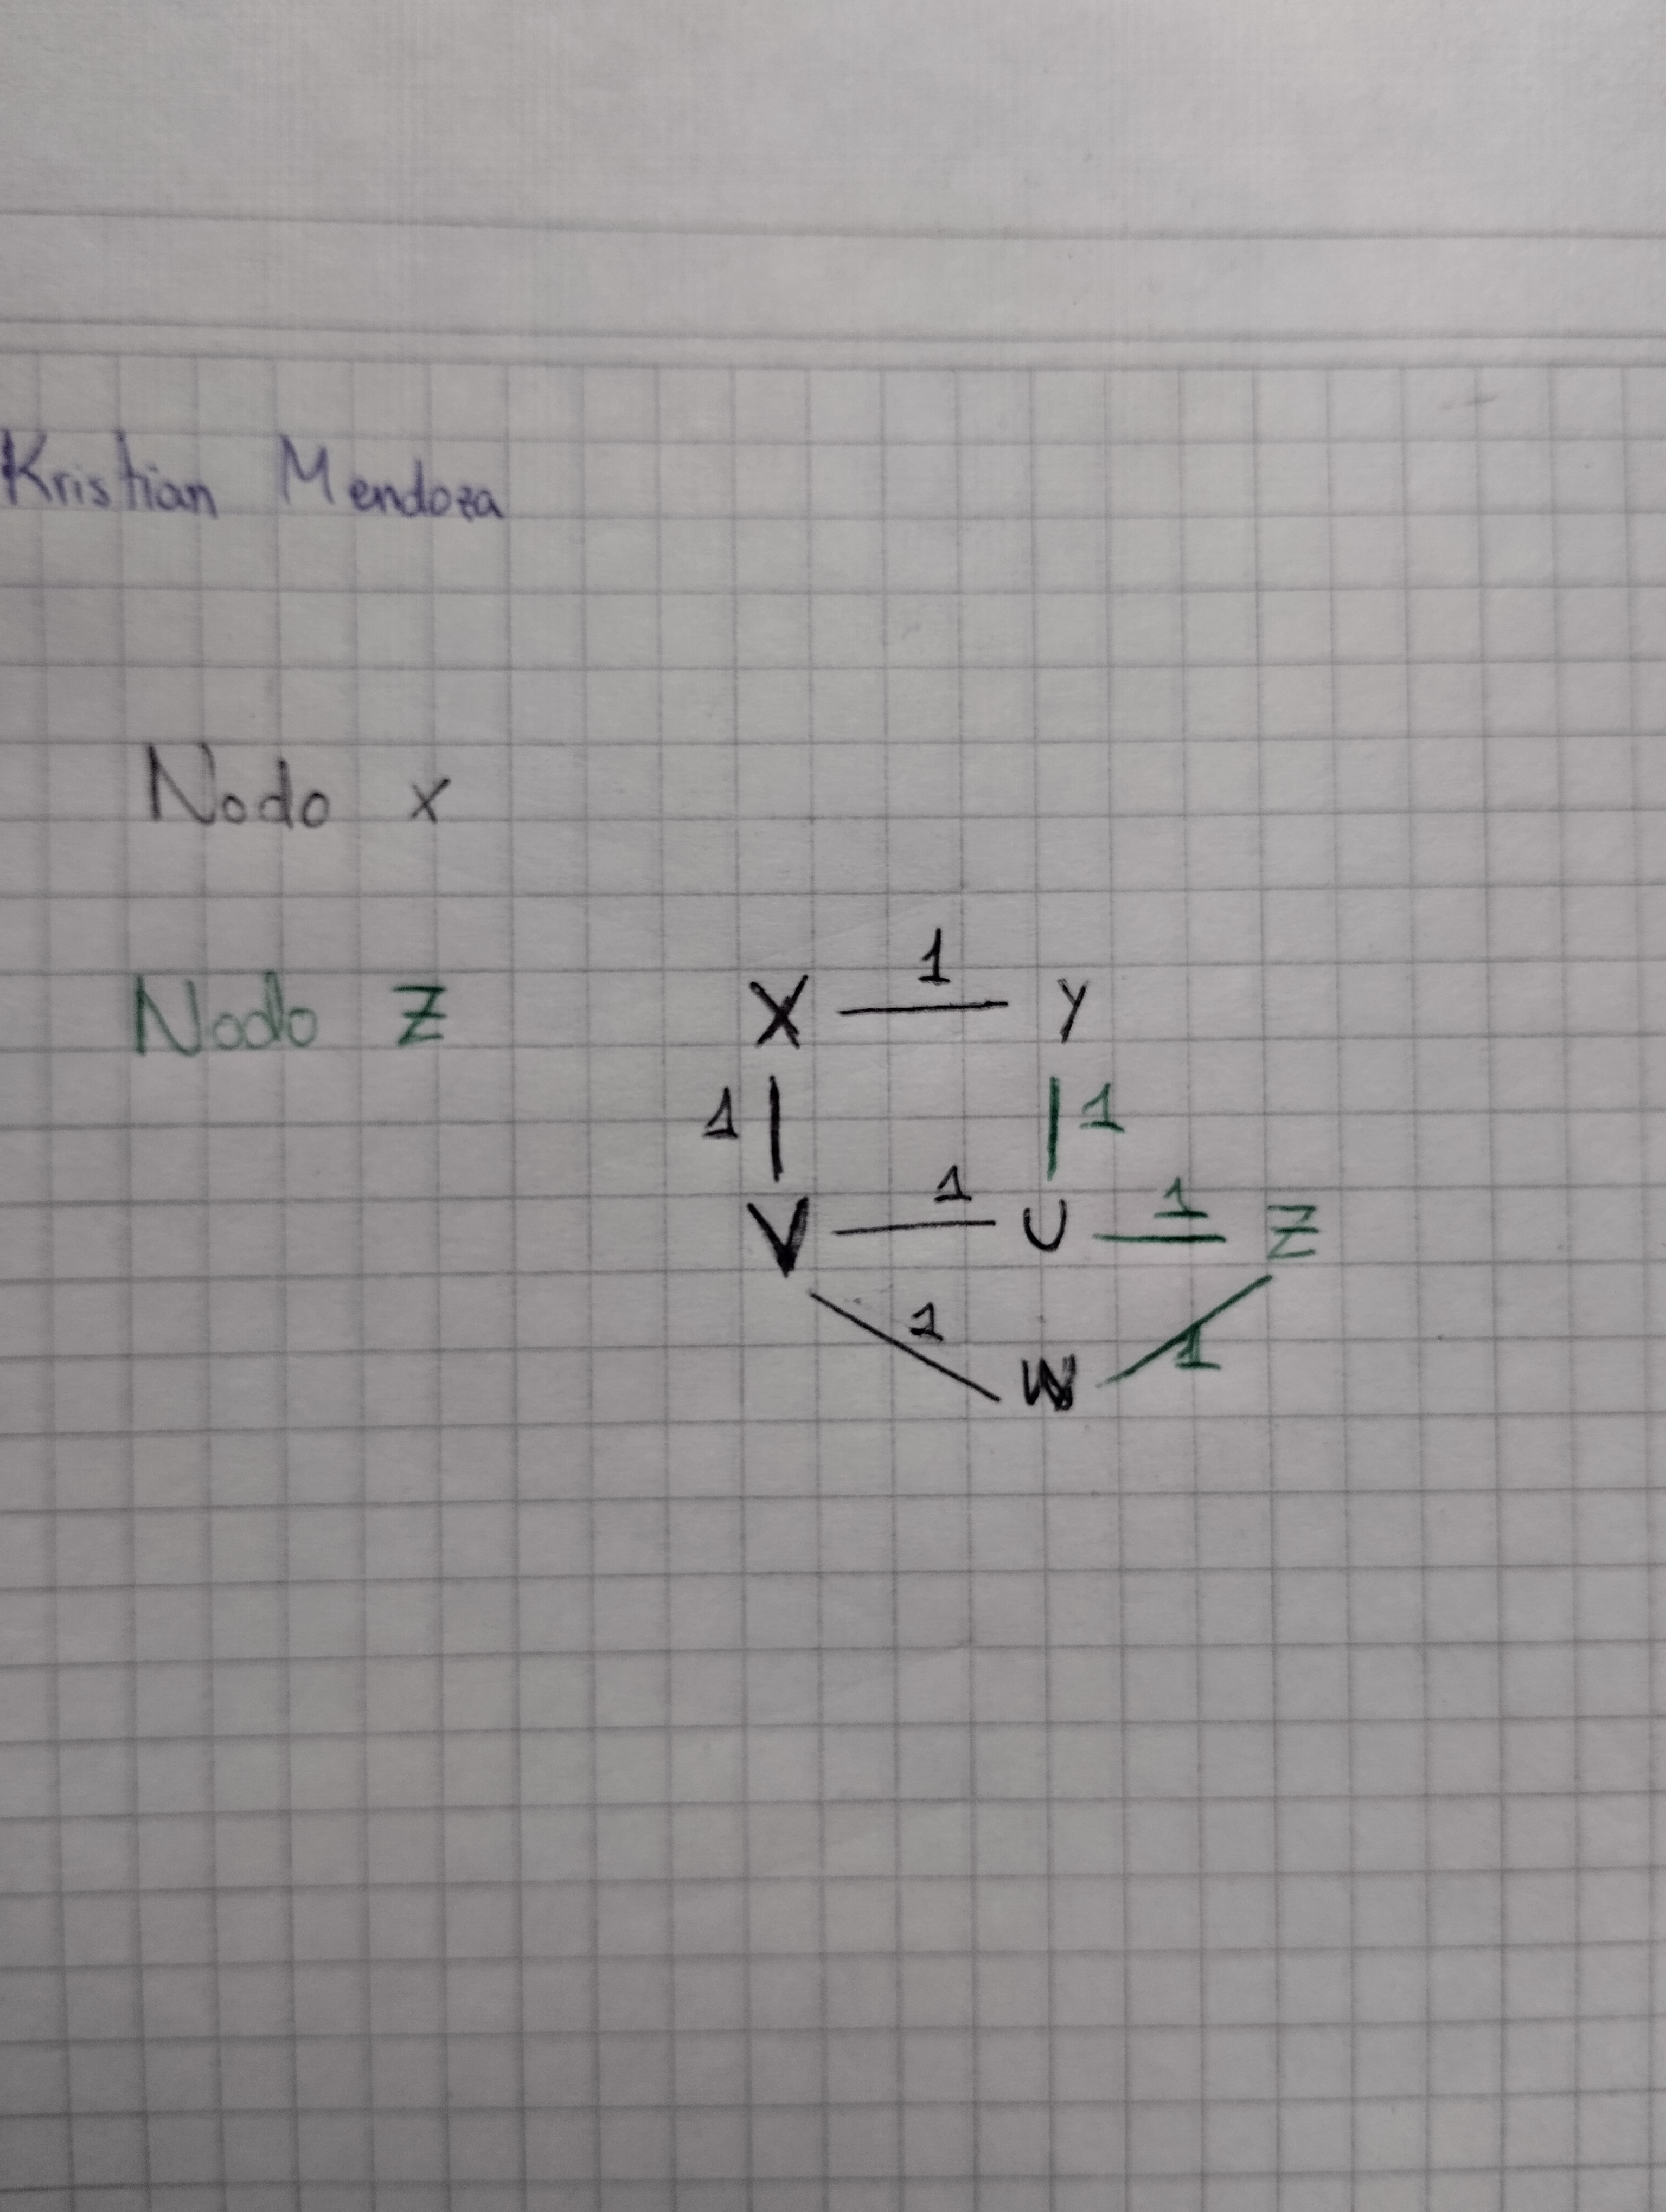 Kristian Mendoza
Nodo x
Nodo Z
1
X Y
1 1
1 1
V U Z
1 1
W